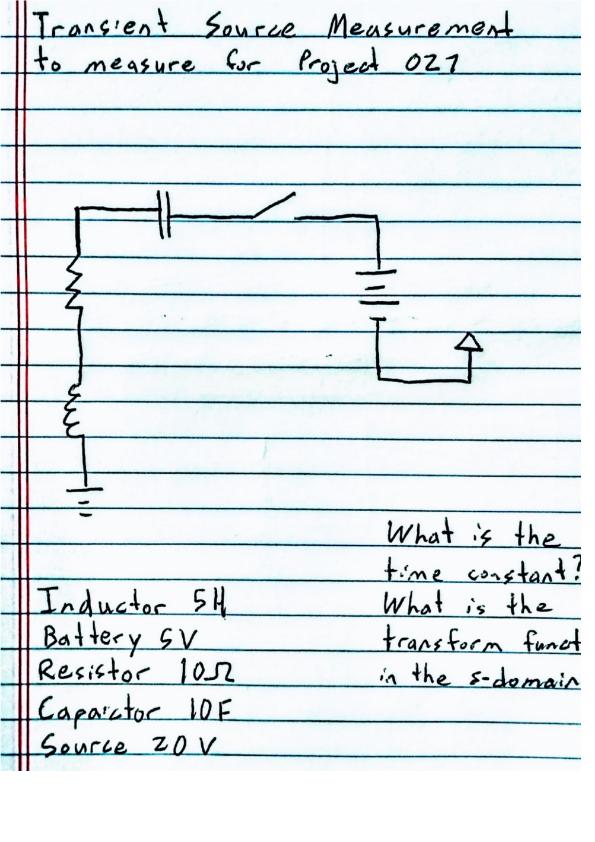 Transient Source Measurement
to measure for Project 027
What is the
time constant?
What is the
transform funct
in the s-domain
Inductor 5H
Battery 5V
Resistor 10Ω
Capaictor 10F
Source 20V